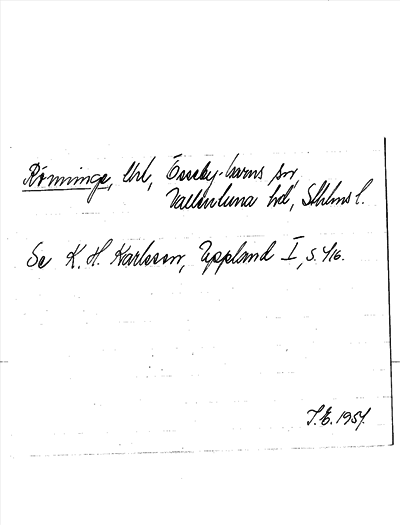 Rönninge, Url, Össeby-Garns sn,
Vallentuna hd, Sthlms l.
Se K. H. Karlsson, Uppland I, s. 416.
J.E. 1957.